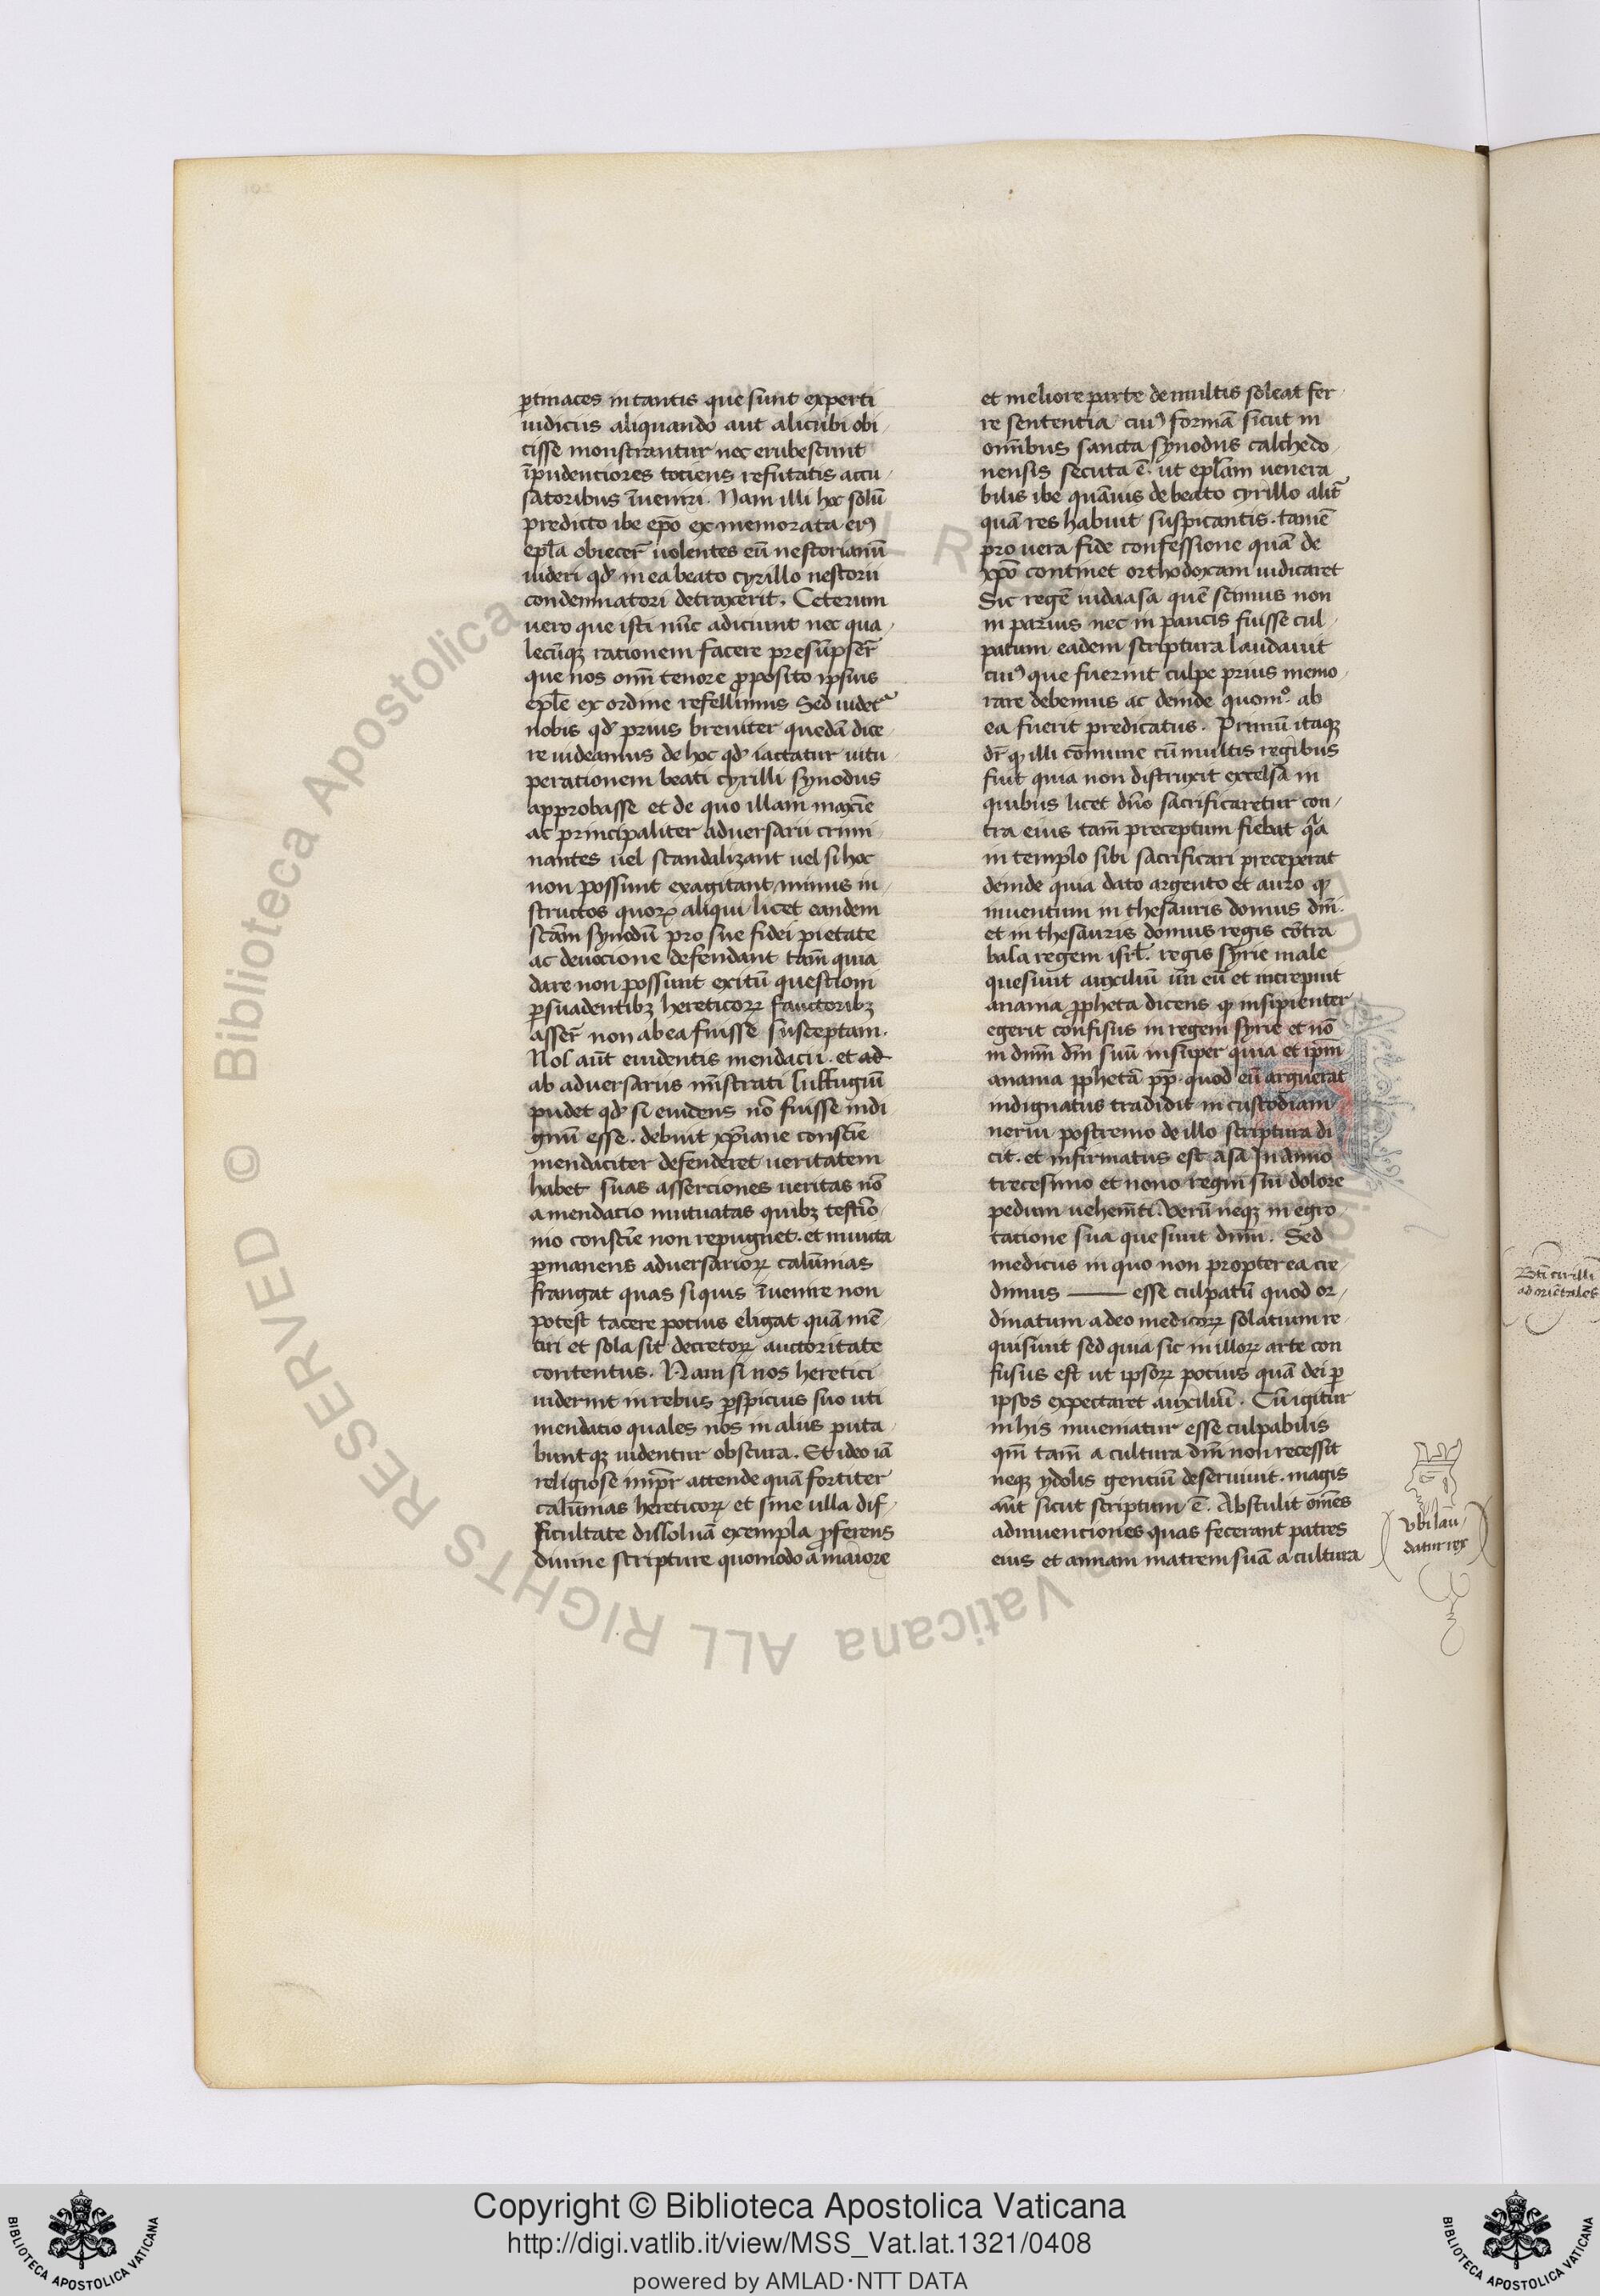 ꝑtinaces in tantis que sunt experti
iudiciis aliquando aut alicubi obi
cisse monstrantur nec erubescunt
īpudenciores tociens refutatis accu
satoribus īueniri. Nam illi hoc solū
predicto ibe ep̄o ex memorata eiꝰ
ep̄la obiecer̄ uolentes eū nestorianū
uideri qd̓ in ea beato cyrillo nestorii
condemnatori detraxerit. Ceterum
uero que isti nūc adiciunt nec qua
lecūqꝫ rationem facere presūpser̄
que nos om̄i tenore ꝓposito ipsius
ep̄le ex ordine refellimus Sed uidet᷑
nobis qd̓ prius breuiter quedā dice
re uideamus de hoc qd̓ iactatur uitu
perationem beati cyrilli synodus
approbasse et de quo illam maxīe
ac principaliter aduersarii crimi
nantes uel scandalizant uel si hoc
non possunt exagitant minus in
structos quoꝝ aliqui licet eandem
sc̄am synodū pro sue fidei pietate
ac deuocione defendant tam̄ quia
dare non possunt exitū questioni
ꝑsuadentibꝫ hereticoꝝ fauctoribꝫ
asser̄ non ab ea fuisse susceptam.
Nol aūt euidentis mendacii. et ad
ab aduersariis mīstrati suffugiū
pudet qd̓ si euidens nō fuisse indi
gnū esse. debuit xp̄iane consc̄ie
mendaciter defenderet ueritatem
habet suas asserciones ueritas nō
a mendacio mutuatas quibꝫ testīo
nio consc̄ie non repugnet. et inuicta
ꝑmanens aduersarioꝝ calūnias
frangat quas si quis īuenire non
potest tacere potius eligat quā mē
tiri et sola sit decretoꝝ auctoritate
contentus. Nam si nos heretici
uiderint in rebus ꝑspicuis suo uti
mendatio quales nos in aliis puta
buntqꝫ uidentur obscura. Et ideo iā
religiose imp̄r attende quā fortiter
calūnias hereticoꝝ et sine ulla dif
ficultate dissoluā exempla ꝓferens
diuine scripture quomodo a maiore
et meliore parte de multis soleat fer
re sententia cuiꝰ formā sicut in
om̄ibus sancta synodus calchedo
nensis secuta ē. ut ep̄lam uenera
bilis ibe quāuis de beato cyrillo alit̄
quā res habuit suspicantis. tamē
pro uera fide confessione quā de
xp̄o continet orthodoxam iudicaret
Sic regē iuda asa quē scimus non
in paruis nec in paucis fuisse cul
patum eadem scriptura laudauit
cuiꝰ que fuerint culpe prius memo
rare debemus ac deinde quom̊. ab
ea fuerit predicatus. Primū itaqꝫ
dr̄ ꝙ illi cōmune cū multis regibus
fuit quia non distruxit excelsa in
quibus licet dn̄o sacrificaretur con
tra eius tam̄ preceptum fiebat qͣa
in templo sibi sacrificari preceperat
deinde quia dato argento et auro ꝙ
inuentum in thesauris domus dn̄i.
et in thesauris domus regis cōtra
basa regem isrl̄. regis syrie male
quesiuit auxiliū un̄ eū et increpuit
anania ꝓpheta dicens ꝙ insipienter
egerit confisus in regem syrie et nō
in dn̄m dm̄ suū insuper quia et ip̄m
anania ꝓphetā pp̄. quod eū arguerat
indignatus tradidit in custodiam
nerui postremo de illo scriptura di
cit. et infirmatus est asa In anno
trecesimo et nono regni sui dolore
pedum uehem̄ti. Verū neqꝫ in egro
tatione sua quesiuit dn̄m. Sed
medicus in quo non propterea cre
dimus — esse culpatū quod or
dinatum a deo medicoꝝ solatium re
quisiuit sed quia sic in illoꝝ arte con
fusus est ut ipsoꝝ potius quā dei ꝑ
ipsos expectaret auxiliū. Cū igitur
in his inueniatur esse culpabilis
qm̄ tam̄ a cultura dn̄i non recessit
neqꝫ ydolis gentiū deseruiuit. magis
aūt sicut scriptum ē. Abstulit om̄es
adinuenciones quas fecerant patres
eius et annam matrem suā a cultura
vbi lau
datur rex
Bti cirilli
ad oriētales
Copyright © Biblioteca Apostolica Vaticana
http://digi.vatlib.it/view/MSS_Vat.lat.1321/0408
powered by AMLAD·NTT DATA
BIBLIOTECA APOSTOLICA VATICANA
BIBLIOTECA APOSTOLICA VATICANA
© Biblioteca Apostolica Vaticana ALL RIGHTS RESERVED